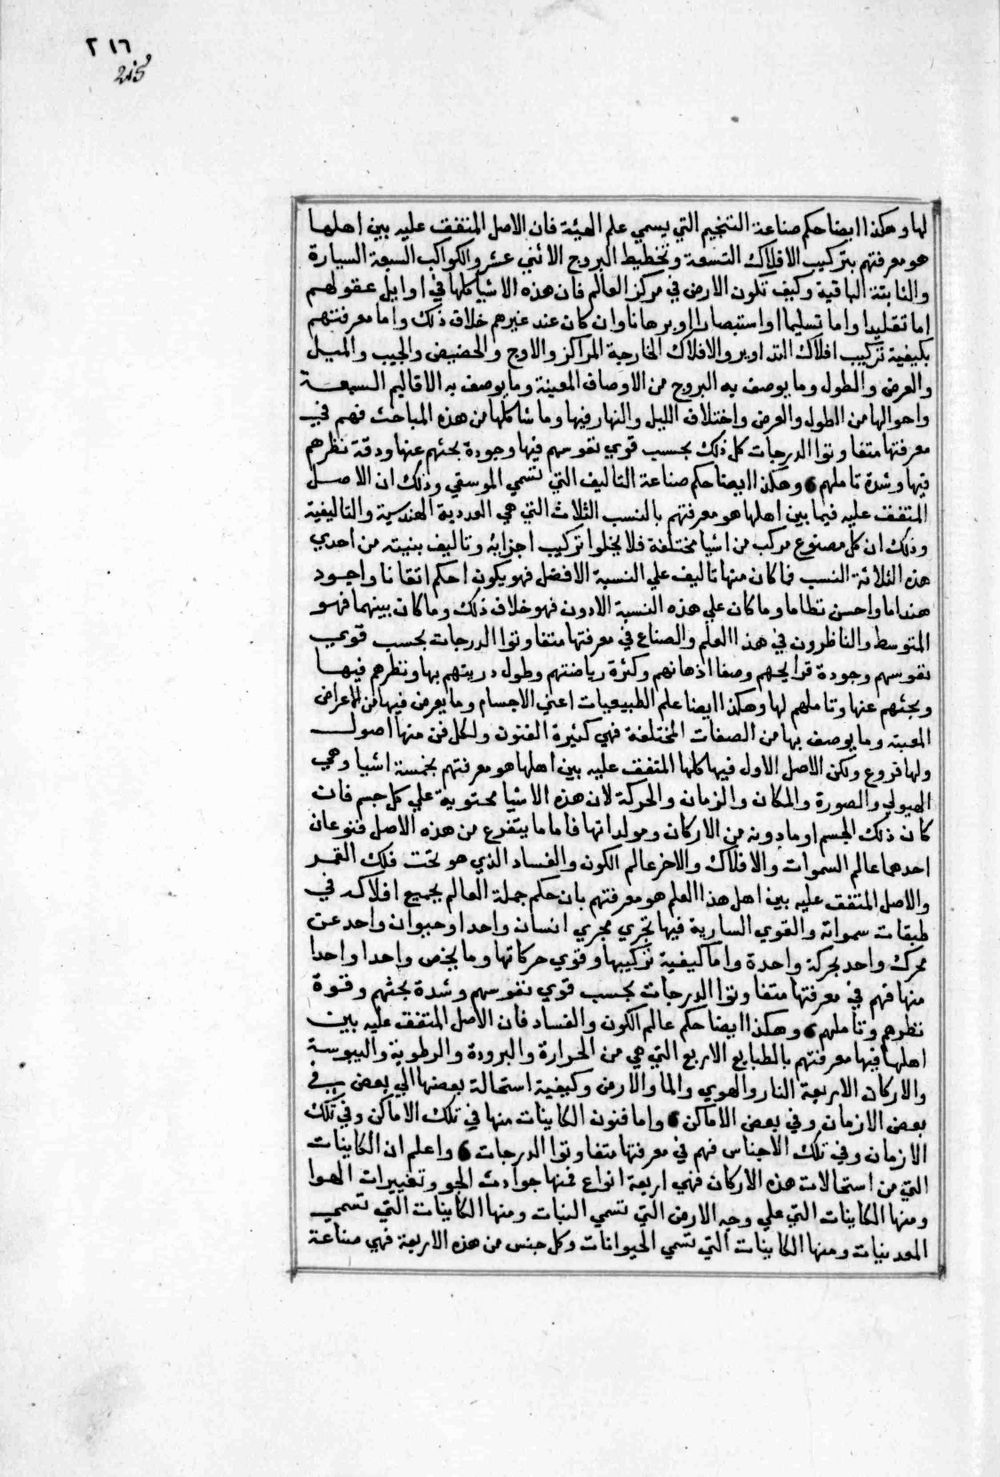 ٢١٦
215
لها وهكذا ايضا حكم صناعة التنجيم التي يسمي علم الهيئة فان الاصل المتفق عليه بين اهلها
هو معرفتهم بتركيب الافلاك التسعة وتخطيط البروج الاثني عشر والكواكب السبعة السيارة
والثابتة الباقية وكيف تكون الارض في مركز العالم فان هذه الاشيا كلها في اوايل عقولهم
اما تقليدا واما تسليما او استبصارا او برهانا وان كان عند غيرهم خلاف ذلك واما معرفتهم
بكيفية تركيب افلاك التداوير والافلاك الخارجية المراكز والاوج والحضيض والجيب والميل
والعرض والطول وما يوصف به البروج من الاوصاف المعينة وما يوصف به الاقاليم السبعة
واحوالها من الطول والعرض واختلاف الليل والنهار فيها وما شاكلها من هذه المباحث فهم في
معرفتها متفاوتوا الدرجات كل ذلك بحسب قوي نفوسهم فيها وجودة بحثهم عنها ودقة نظرهم
فيها وشدة تاملهم 6 وهكذا ايضا حكم صناعة التاليف التي تسمي الموسقي وذلك ان الاصل
المتفق عليه فيما بين اهلها هو معرفتهم بالنسب الثلاث التي هي العددية الهندسية والتاليفية
وذلك ان كل مصنوع مركب من اشيا مختلفة فلا يخلوا تركيب اجزايه وتاليف بنيته من احدي
هذه الثلاثة النسب فما كان منها تاليف علي النسبة الافضل فهو يكون احكم اتقانا واجود
هنداما واحسن نظاما وما كان علي هذه النسبة الادون فهو خلاف ذلك وما كان بينهما فهو
المتوسط والناظرون في هذا العلم والصناع في معرفتها متفاوتوا الدرجات بحسب قوي
نفوسهم وجودة قرايحهم وصفا اذهانهم وكثرة رياضتهم وطول دربتهم بها ونظرهم فيها
وبحثهم عنها وتاملهم لها وهكذا ايضا علم الطبيعيات اعني الاجسام وما يعرض فيها من الاعراض
المعينه وما يوصف بها من الصفات المختلفة فهي كثيرة الفنون ولكل فن منها اصول
ولها فروع ولكن الاصل الاول فيها كلها المتفق عليه بين اهلها هو معرفتهم بخمسة اشيا وهي
الهيولي والصورة والمكان والزمان والحركة لان هذه الاشيا محتوية علي كل جسم فان
كان ذلك الجسم او ما دونه من الاركان ومولداتها فاما ما يتفرع من هذه الاصل فنوعان
احدهما عالم السموات والافلاك والاخر عالم الكون والفساد الذي هو تحت فلك القمر
والاصل المتفق عليه بين اهل هذا العلم هو معرفتهم بان حكم جملة العالم بجميع افلاكه في
طبقات سمواته والقوي السارية فيها تجري مجري انسان واحد او حيوان واحد عن
محرك واحد بحركة واحدة واما كيفية تركيبها وقوي حركاتها وما يخص واحدا واحدا
منها فهم في معرفتها متفاوتوا الدرجات بحسب قوي نفوسهم وشدة بحثهم وقوة
نظرهم وتاملهم 6 وهكذا ايضا حكم عالم الكون والفساد فان الاصل المتفق عليه بين
اهلها فيها معرفتهم بالطبايع الاربع التي هي من الحرارة والبرودة والرطوبة واليبوسة
والاركان الاربعة النار والهوي والما والارض وكيفية استحالة بعضها الي بعض في
بعض الازمان وفي بعض الاماكن 6 واما فنون الكاينات منها في تلك الاماكن وفي تلك
الازمان وفي تلك الاجناس فهم في معرفتها متفاوتوا الدرجات 6 واعلم ان الكاينات
التي من استحالات هذه الاركان فهي اربعة انواع فمنها حوادث الجو وتغييرات الهوا
ومنها الكاينات التي علي وجه الارض التي تسمي النبات ومنها الكاينات التي تسمي
المعدنيات ومنها الكاينات التي تسمي الحيوانات وكل جنس من هذه الاربعة فهي صناعة